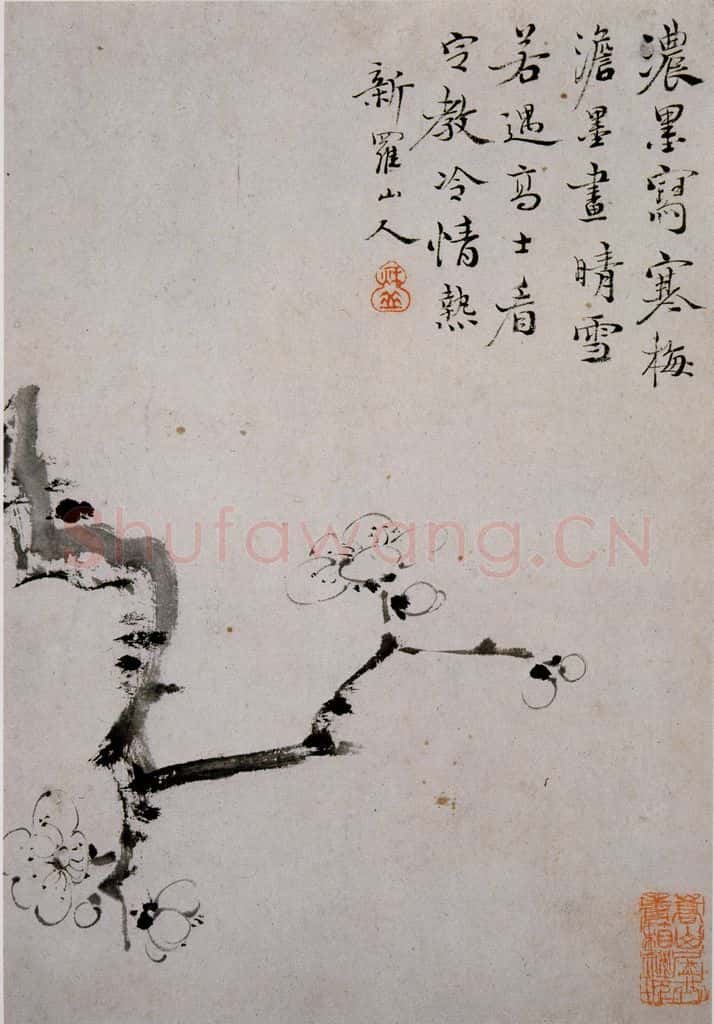 濃墨寫寒梅
澹墨畫晴雪
若遇高士看
令教冷情熱
新羅山人
Shufawang.CN